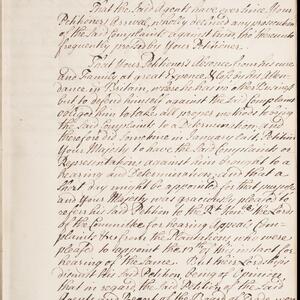 That the Said Agents have ever since Your
Petitioners Arrival, wholly declined any prosecution
of the Said Complaints against him, tho' thereunto
frequently pressed by Your Petitioner.
That Your Petitioners Absence from his
and Family at great Expence & Loss in his Atten-
dance in Britain, where he has no other Business
but to defend himself against the Said Complaints
obliged him to take all proper methods to bring
the Said Complaints to a Determination, and
therefore did Sometime in January last Petition
Your Majesty to have the Said Complaints or
Representations against him brought to a
hearing and Determination, and that a
short day might be appointed for that purpose
and Your Majesty was graciously pleased to
refer his Said Petition to the Rt. Honble. the Lords
of the Committee for hearing Appeals, Com-
plaints &ca. from the Plantations who were
pleased to appoint the
hearing of the Same. But their Lordships
dismist his Said Petition, being of Opinion
that in regard, the Said Petition of the Said
Agents and Report of the Board of Trade